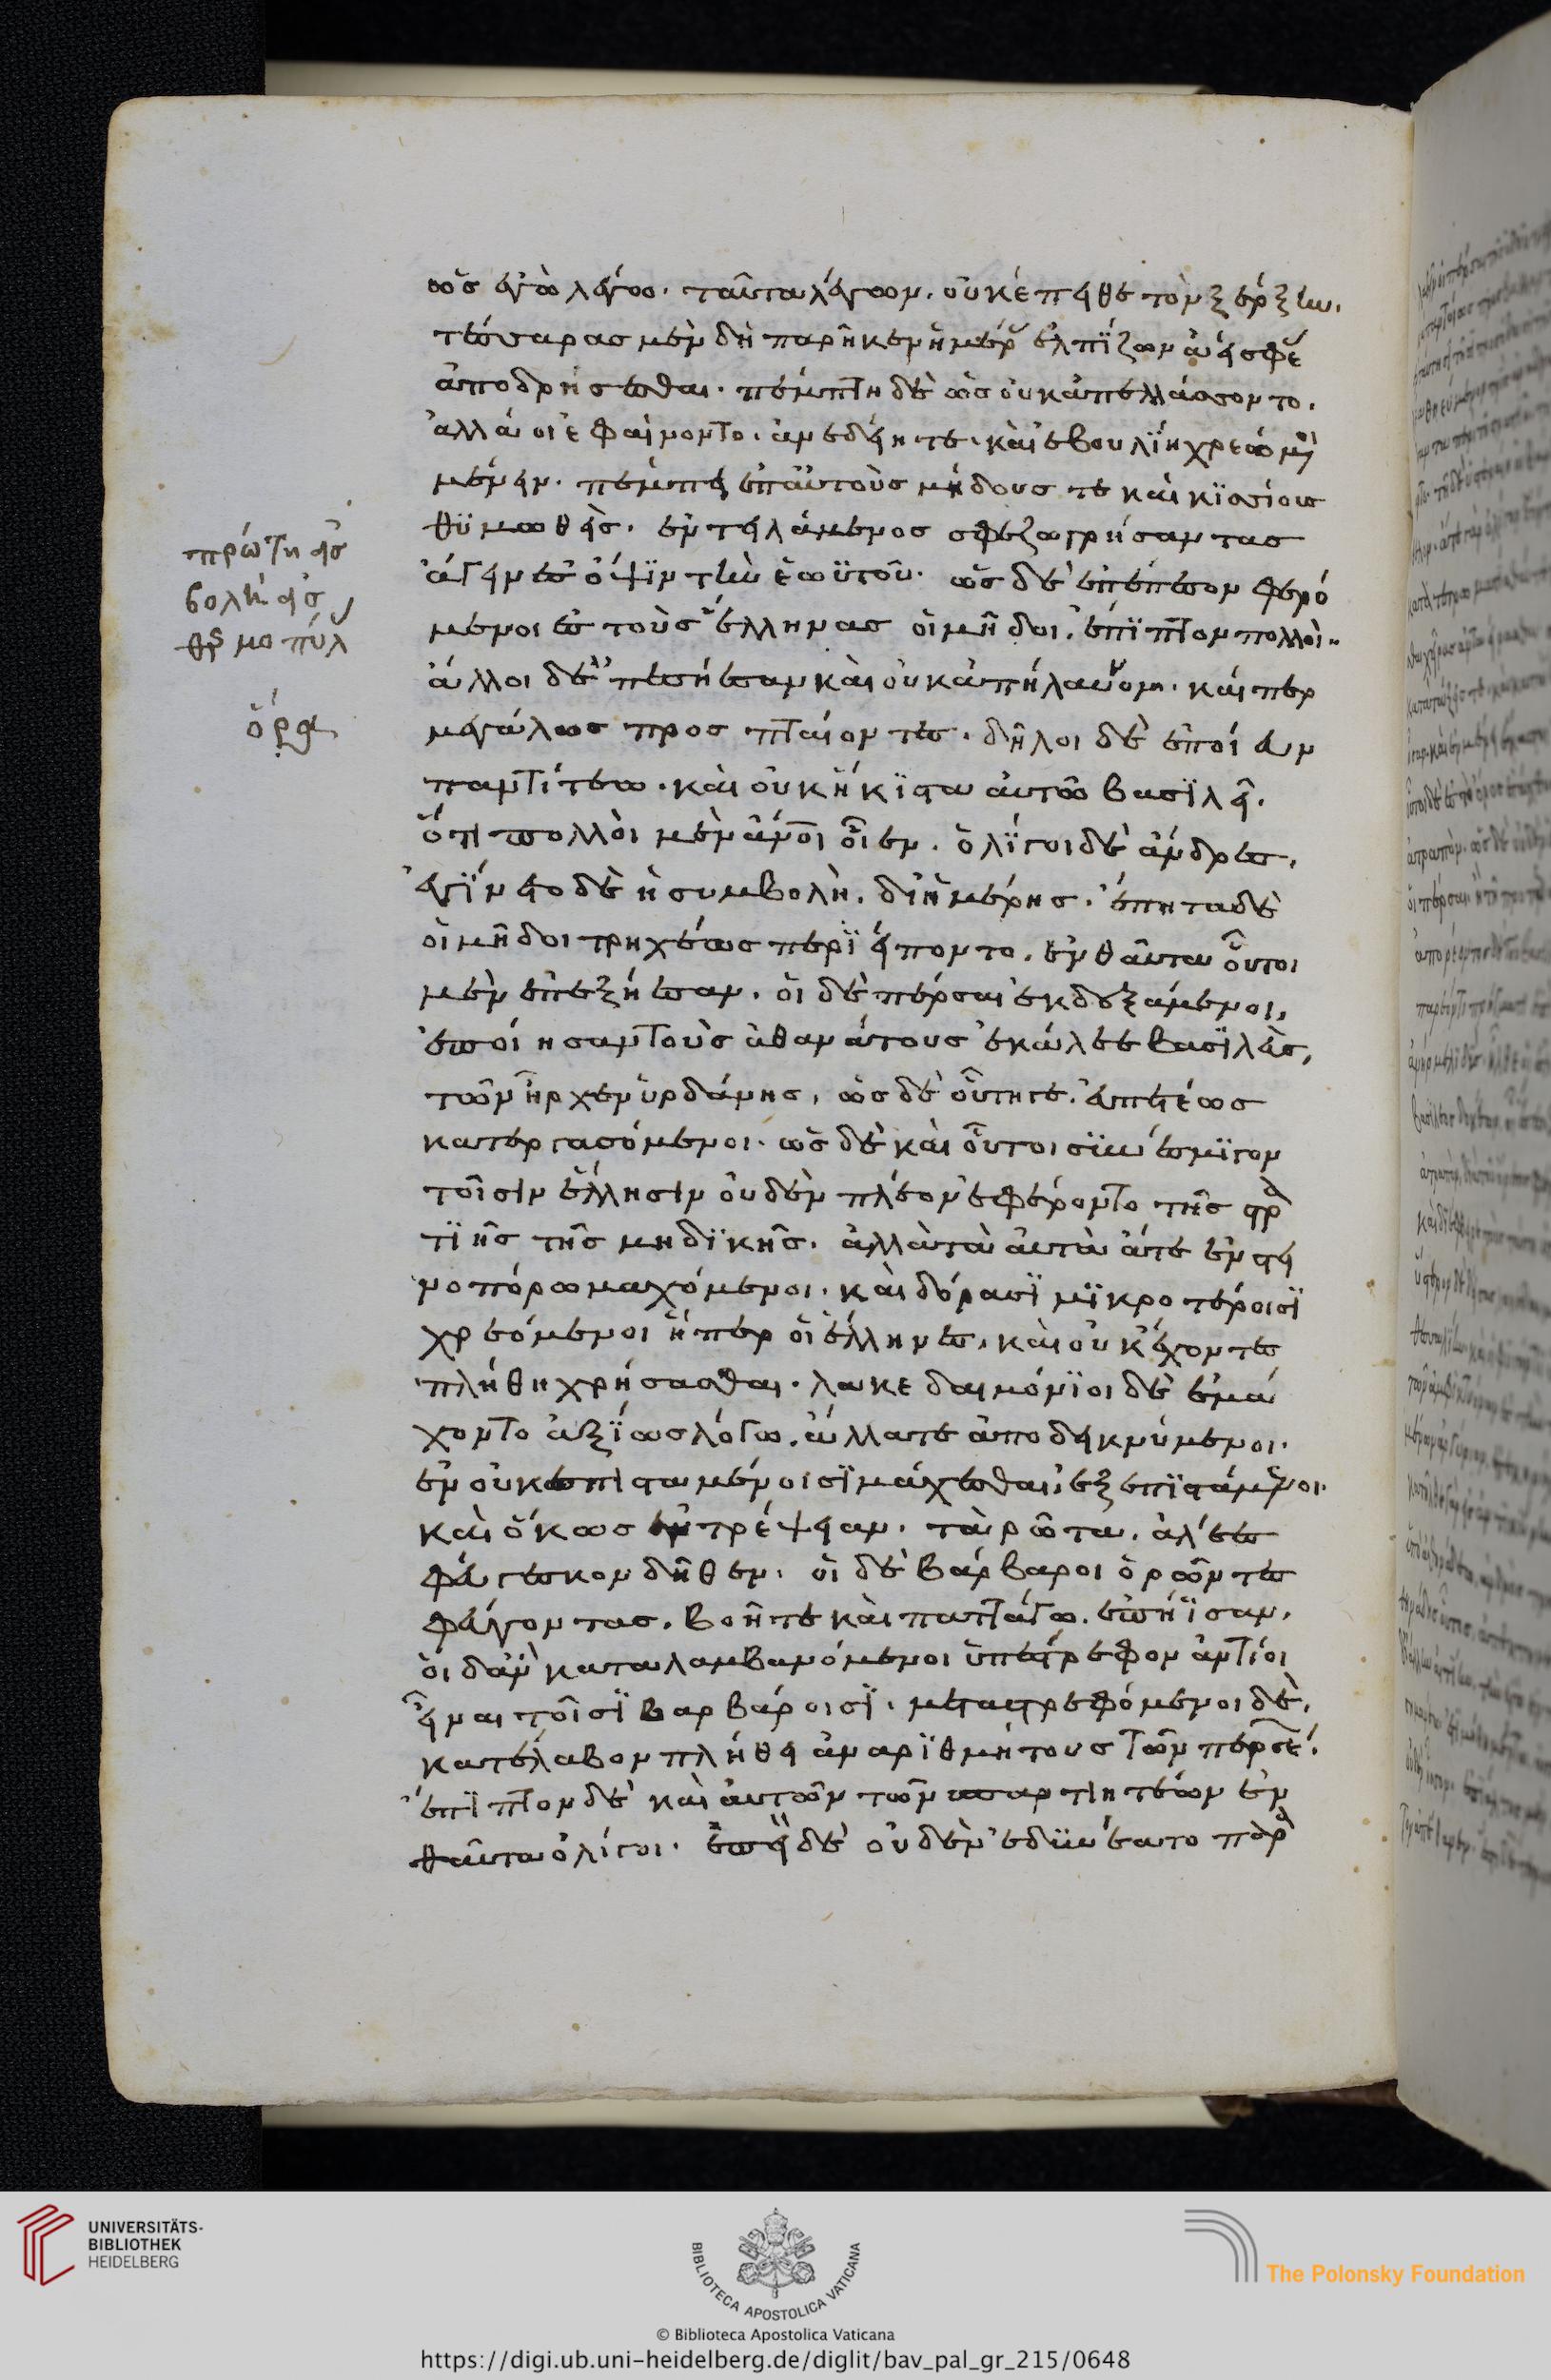 ὡς ἐγὼ λέγω. ταῦτα λέγων. οὐκ ἔπειθε τὸν ξέρξην.
τέσσαρας μὲν δὴ παρῆκεν ἡμέρ ἐλπΐζων ἀεί σφε
ἀποδρήσεσθαι. πέμπτη δὲ ὡς οὐκ ἀπελλάσσοντο.
ἀλλά οἱ ἐφαίνοντο. ἀνεδείη τε. καὶ ἐβουλΐη χρεώμ
μένειν. πέμπει ἐπ αὐτοὺς μήδους τε καὶ κϊσσίους
θϋμωθεὶς. ἐντειλάμενος σφε ζωγρήσαντας
ἄγειν ἐς ὄψϊν τὴν ἑωϋτοῦ. ὡς δὲ ἐπέπεσον φερό
μενοι ἐς τοὺς ἕλληνας οἱ μῆδοι. ἔπϊπτον πολλοὶ.
ἄλλοι δὲ ἐπεσήεσαν καὶ οὐκ ἀπήλαυνον. καίπερ
μεγάλως προσπταίοντες. δῆλοι δὲ ἐποίευν
παντί τεω. καὶ οὐκ ἥκϊστα αὐτῶ βασϊλεῖ.
ὅτι πολλοὶ μὲν ἄνοι εἶεν. ὀλΐγοι δὲ ἄνδρες.
ἐγΐνετο δὲ ἡ συμβολὴ. δϊ ἡμέρης. ἔπητα δὲ
οἱ μῆδοι τρηχέως περϊείποντο. ἐνθαῦτα οὗτοι
μὲν ἐπεξήεσαν. οἱ δὲ πέρσαι ἐκδοξάμενοι,
ἐποίησαν τοὺς ἀθανάτους ἐκάλεε βασϊλεὺς,
τῶν ἦρχεν ὑρδάνης, ὡς δὲ οὗτη γε. εὐπετέως
κατεργασόμενοι. ὡς δὲ καὶ οὗτοι σϋνέμϊσγον
τοῖσιν ἕλλησιν οὐδὲν πλέον ἐφέροντο τῆς στρα
τϊῆς τῆς μηδϊκῆς. ἀλλὰ τὰ αὐτὰ ἅτε ἐν στει
νοπόρω μαχόμενοι. καὶ δόρασϊ μϊκροτέροισϊ
χρεόμενοι ἤπερ οἱ ἕλληνες, καὶ οὐκ ἔχοντες
πλήθη χρήσασθαι. λακεδαιμόνϊοι δὲ ἐμά
χοντο ἀξΐως λόγω. ἄλλα τε ἀποδεικνύμενοι.
ἐν οὐκ ἐπισταμένοισϊ μάχεσθαι, ἐξεπϊστάμενοι.
καὶ ὅκως ἐντρέψειαν. τὰ νῶτα. ἁλέες
φεύγεσκον δῆθεν. οἱ δὲ βάρβαροι ὁρῶντες
φεύγοντας. βοῆ τε καὶ παπτάγω. ἐπήϊσαν.
οἱ δ ἂν καταλαμβανόμενοι ὑπέστρεφον ἀντίοι
εἶναι τοῖσϊ βαρβάροισϊ. μεταστρεφόμενοι δὲ.
κατέλαβον πλήθει ἀναρϊθμήτους τῶν περσέ.
ἔπϊπτον δὲ καὶ αὐτῶν τῶν σπαρτιητέων ἐν
θαῦτα ὀλίγοι. ἐπεὶ δὲ οὐδὲν ἐδϋνέατο παρα
πρώτη εἰσ
βολὴ εἰς
θερμοπύλ
ὅρα
UNIVERSITÄTS-
BIBLIOTHEK
HEIDELBERG
BIBLIOTECA APOSTOLICA VATICANA
© Biblioteca Apostolica Vaticana
The Polonsky Foundation
https://digi.ub.uni-heidelberg.de/diglit/bav_pal_gr_215/0648